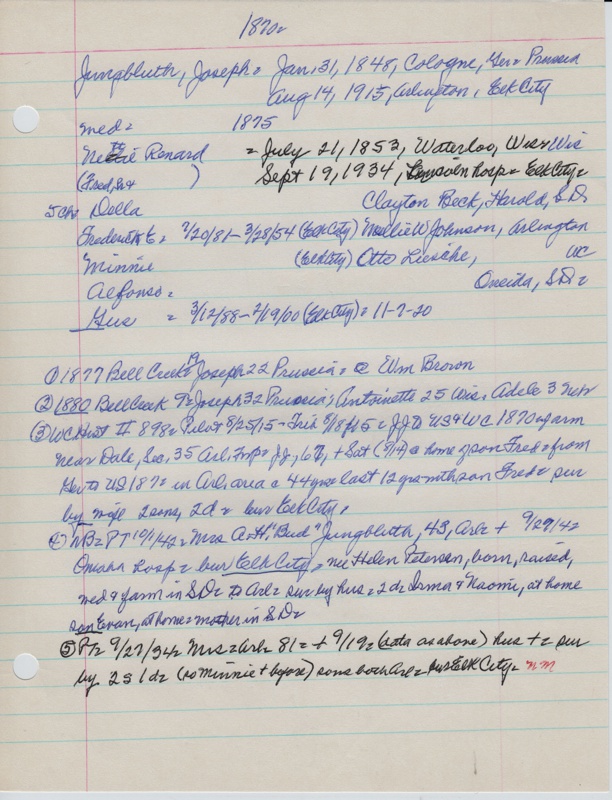 1870=
Jungbluth, Joseph= Jan. 31, 1848, Cologne, Ger= Prussia
Aug 14, 1915, Arlington, Elk City
med= 1875
Renard = July 21, 1853, Waterloo, Wis= Wis
(Fred, Sr= ) Sept 19, 1934, hosp= Elk City=
5 ch= Della Clayton Beck, Harold, S.D.
Frederick E= 7/20/81- 3/28/54 (Elk City) Nellie W Johnson, Arlington
Minnie (Elk City) Otto Liesche, WC
Alfonso= Oneida, SD=
Gus = 3/12/88- 2/19/60 (Elk City)= 11-7-20
① 1877 Bell Creek= Joseph 22 Prussia= @ Wm Brown
② 1880 Bell Creek P= Joseph 32 Prussia; Antoinette 25 Wis, Adele 3 Nebr
③ WC Hist II 898= Pilot 8/25/15- Trib 8/18/15= JJ to US & WC 1870= farm
near Dale, Sec. 35 Arl. Twp= JJ, 67, + Sat (8/14) @ home of son Fred= from
Ger to US 187= in Arl. area c 44 yrs= last 12 yrs with son Fred= sur
by wife 2 sons, 2d= bur Elk City=
④ NB= PT 10/1/42= Mrs A. H. "Bud" Jungbluth, 43, Arl= + 9/29/42
Omaha hosp= bur Elk City= nee Helen Petersen, born, raised,
med & farm in SD= to Arl= sur by hus= 2d= Irma & Naomi, at home
son Evan, at home= mother in SD=
⑤ PT= 9/27/34= Mrs= Arl= 81= + 9/19= (data as above) hus += sur
by 2s 1d= (so Minnie + before) sons both Arl= bur Elk City= nm